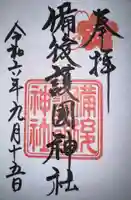 奉拝
備後護國神社
備後
神社
令和六年九月十五日